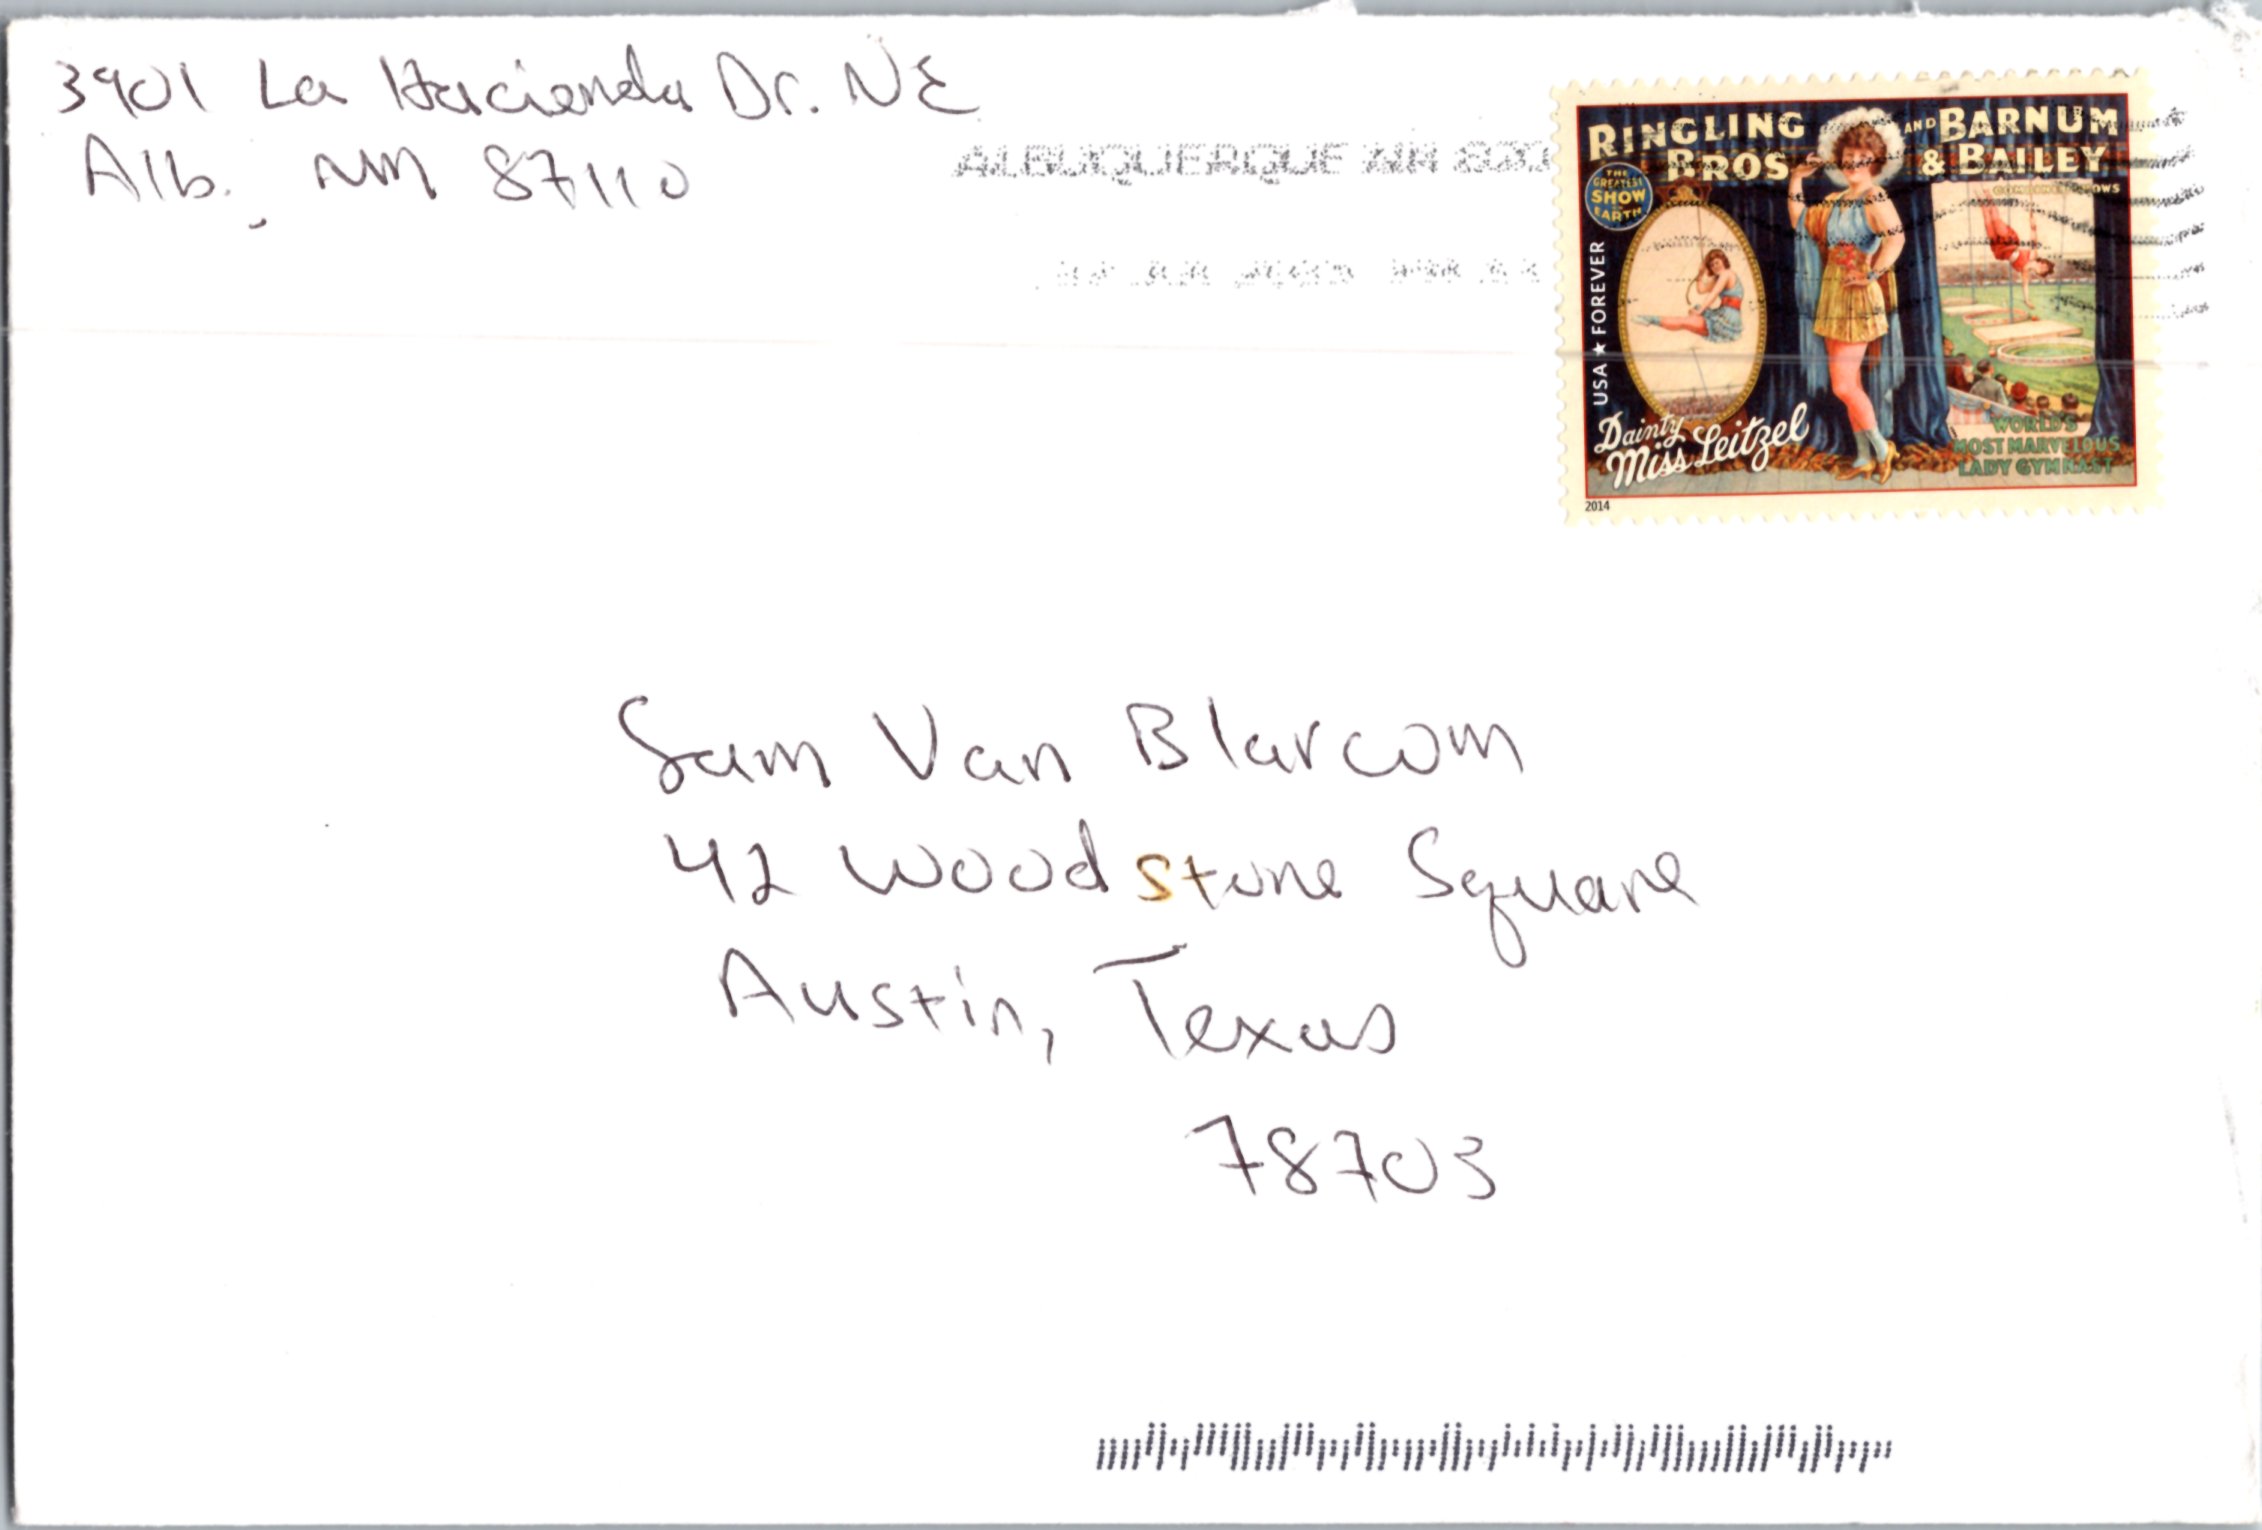 3901 La Hacienda Dr. NE
Alb., NM 87110
ALBUQUERQUE NM
RINGLING BROS AND BARNUM & BAILEY
COMBINED SHOWS
THE GREATEST SHOW ON EARTH
USA ★ FOREVER
Dainty
Miss Leitzel
WORLD'S
MOST MARVELOUS
LADY GYMNAST
2014
Sam Van Blarcom
42 Woodstone Square
Austin, Texas
78703